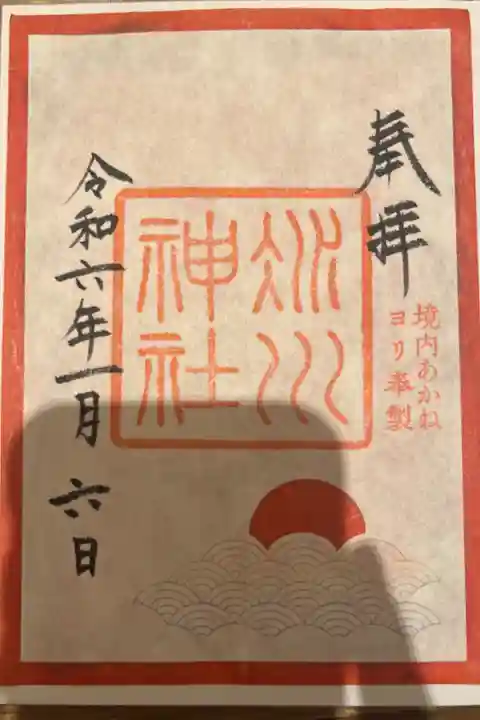 奉拝
境内あかね
ヨリ奉製
氷川
神社
令和六年一月六日